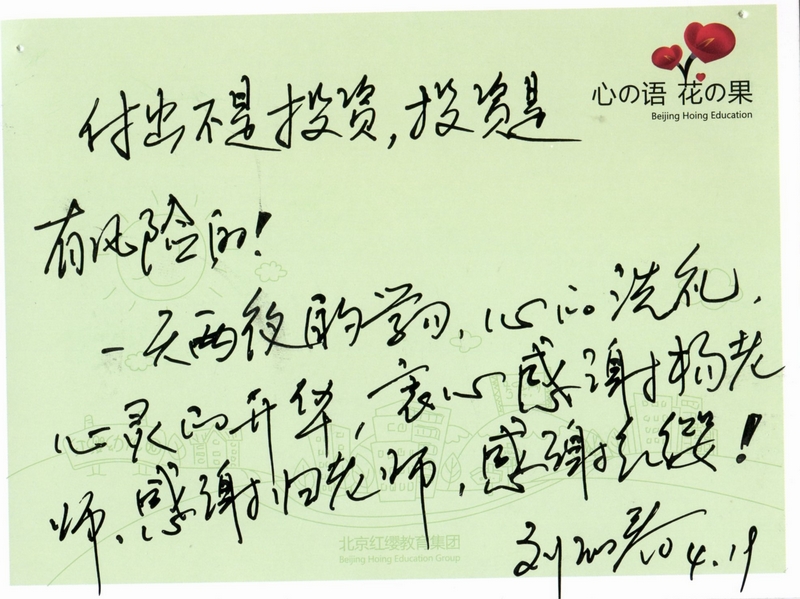 心の语 花の果
Beijing Hoing Education
付出不是投资,投资是
有风险的!
一天两夜的学习,心的洗礼,
心灵的升华,衷心感谢杨老
师、感谢归老师,感谢红缨!
刘 春 4.19
北京红缨教育集团
Beijing Hoing Education Group